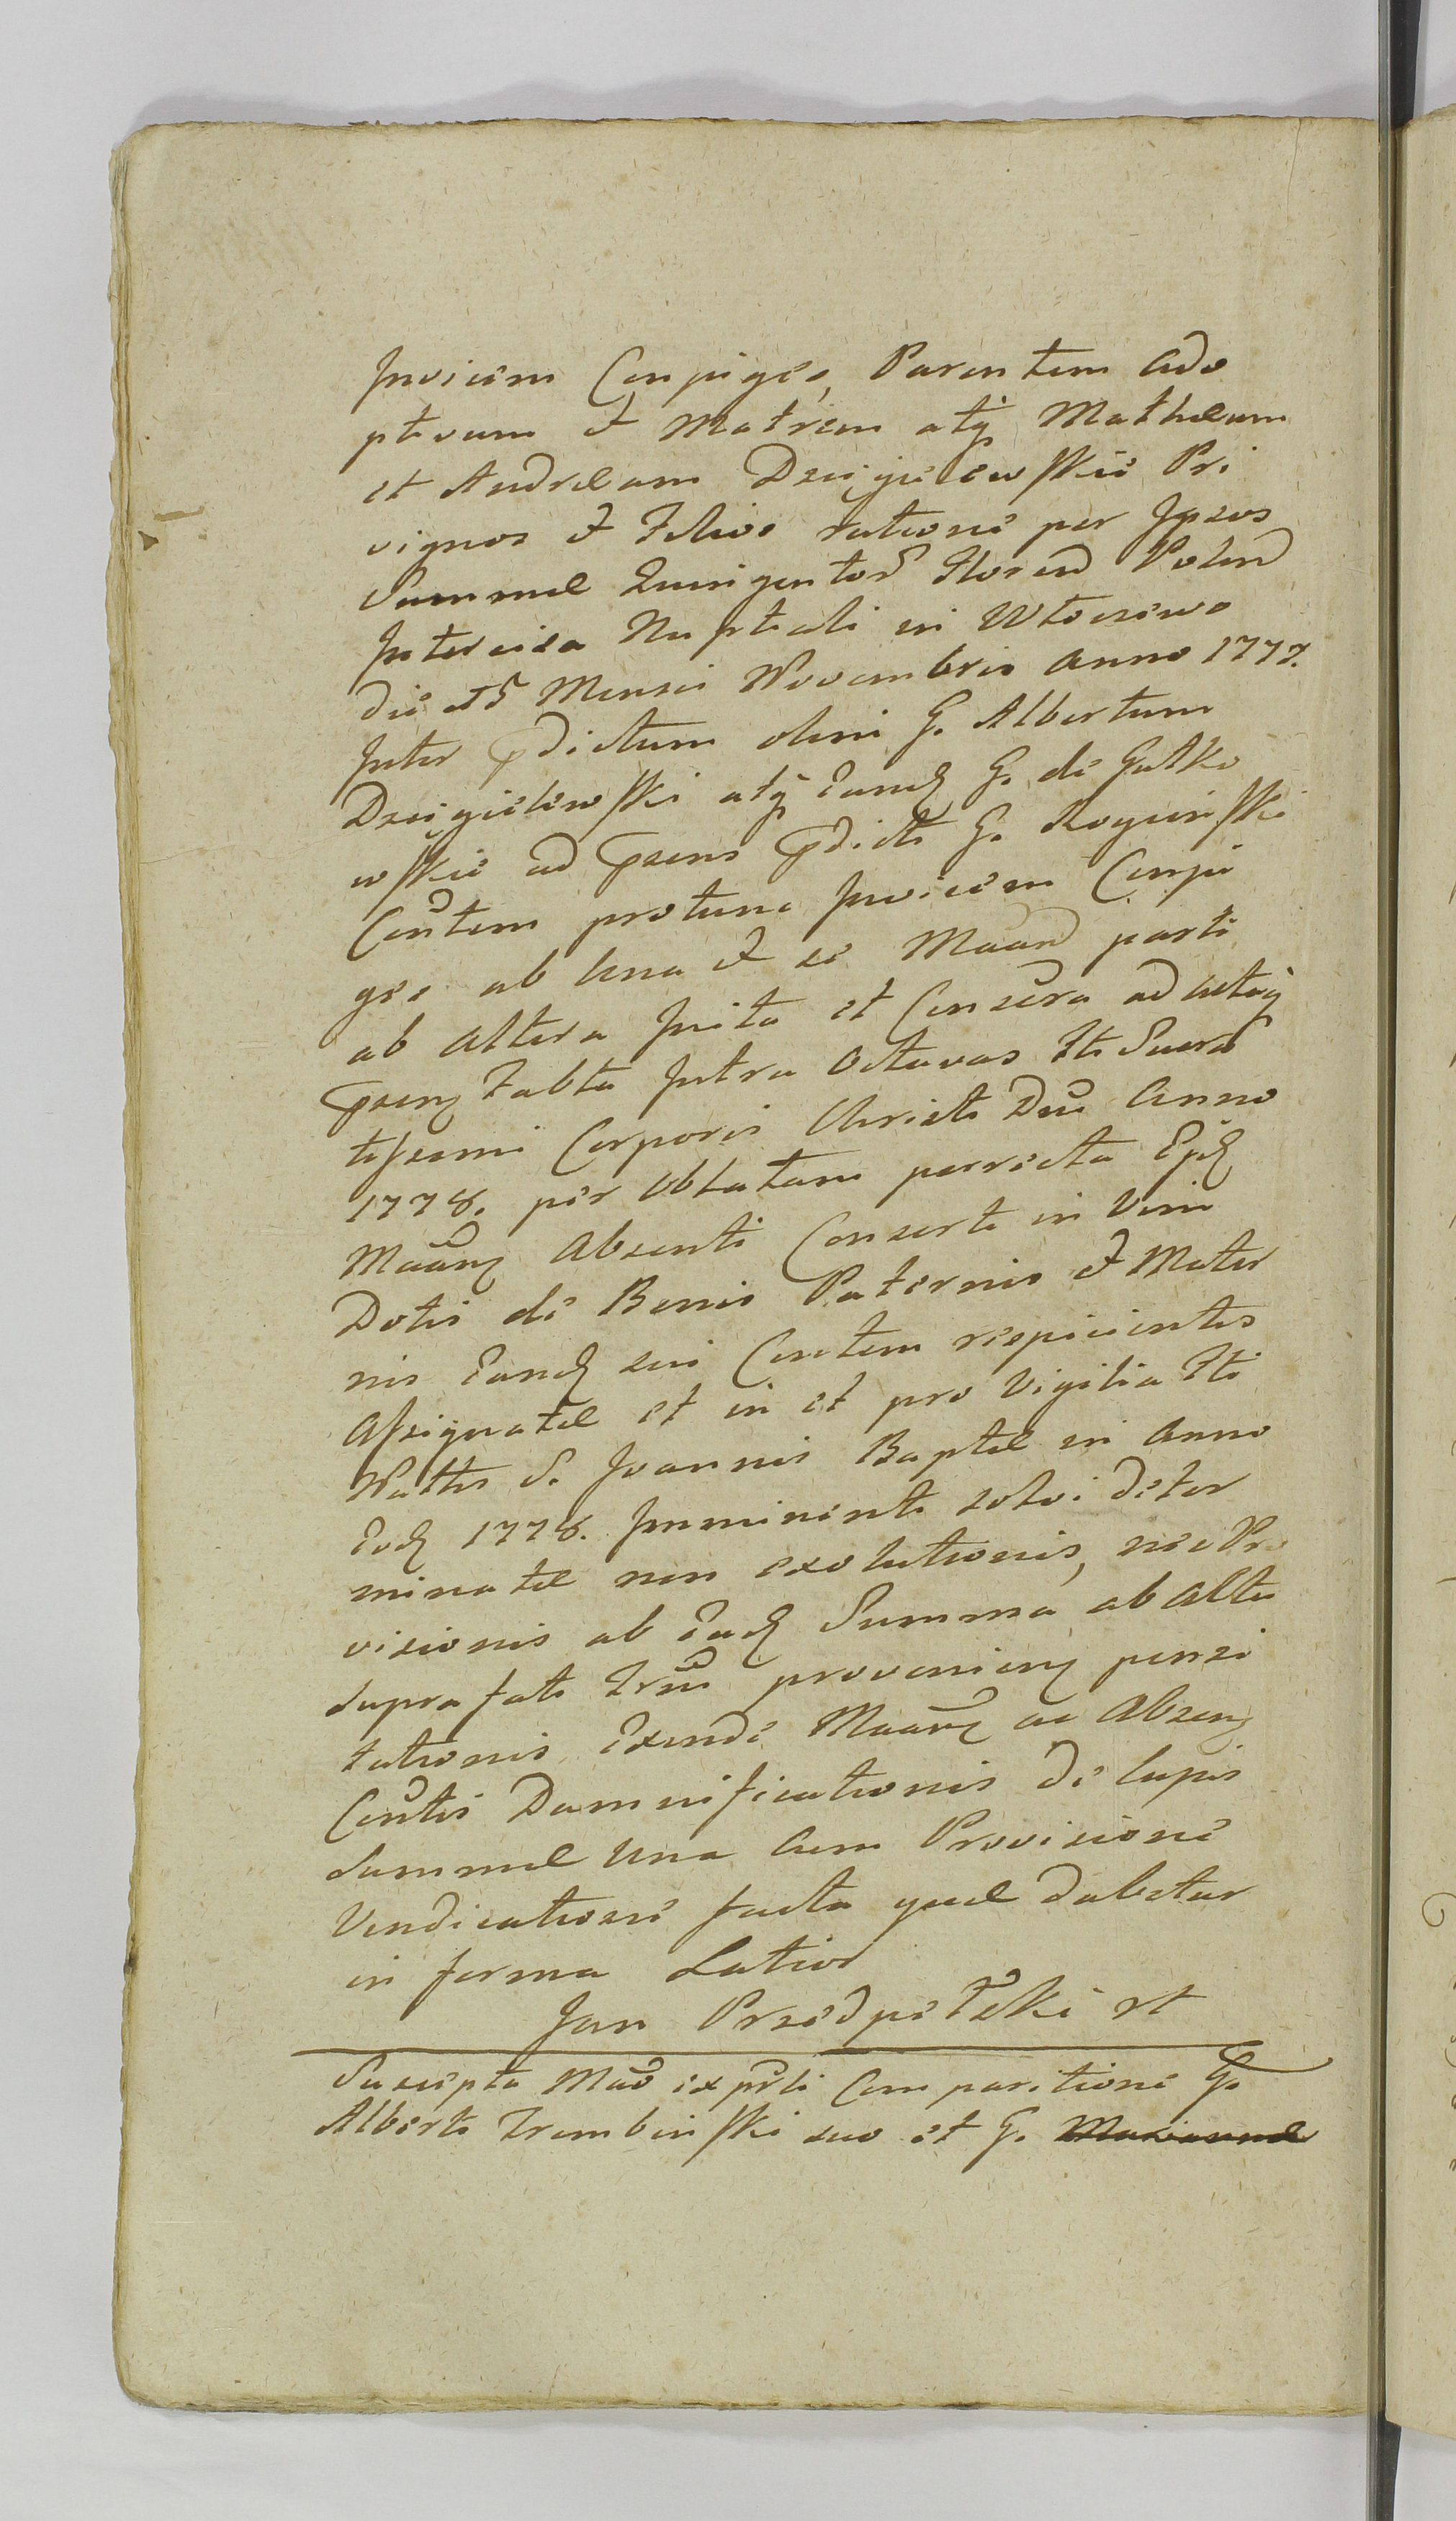 Invicem Conjuges, Parentem Ado
ptivum et Matrem atq Matheum
et Andream Dzięgielewskie Pri
vignos et Filios ratione per Ipsos
Summae Quingentor Floren Polon
Intercisa Nuptiali in Włosciewo
die 25 Mensis Novembris Anno 1777.
Inter pdictum olim G. Albertum
Dzięgielewski atq Eand G. de Gutko
wskie ad psens pdicti G. Rogunski
Contem protunc Invicem Conju
ges ab Una et se Maan parti
ab altera Inita et Conscra ad actaq
psenz Tabta Intra Octavas Fti Sacra
tissimi Corporis Christi Dni Anno
1778. per oblatam porrecta Ejd
Maanz Absenti Conserti in Vim
Dotis de Bonis Paternis et Mater
nis Eand sui Contem respicientis
Assignatae et in et pro Vigilia Fti
Nattis S. Joannis Baptae in Anno
Eod 1778. Imminenti solvi deter
minatae non exolutionis, nec Pro
visionis ab Ead Summa ab altu
suprafati Trni provenienz pensi
tationis Exinde Maanz ac Absenz
Contis Damnificationis de lapis
Summae Una Cum Provisione
Vendicatione facta quae dabitur
in forma Latior
Jan Przedpełski rt
Suscepta Mao ex prli Comparitione G.
Alberti Trembinski suo et G. Mariannae